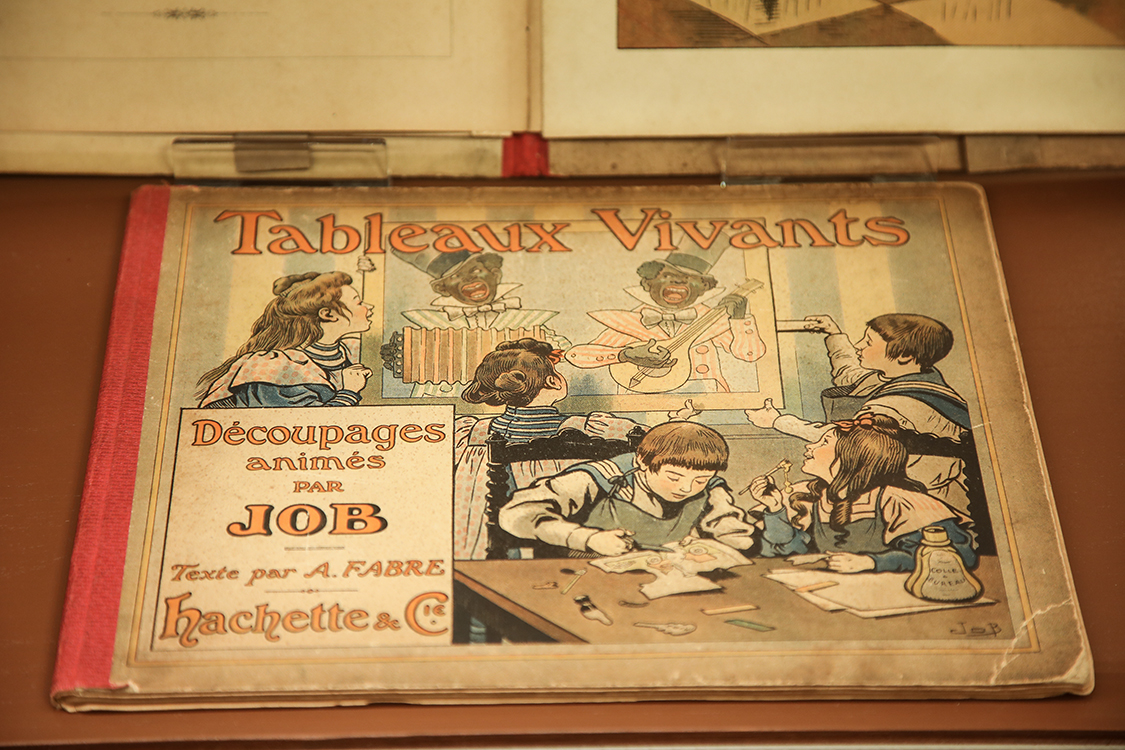 Tableaux Vivants
Découpages
animés
PAR
JOB
Texte par A. FABRE
Hachette & Cie
COLLE
BUREAU
JOB